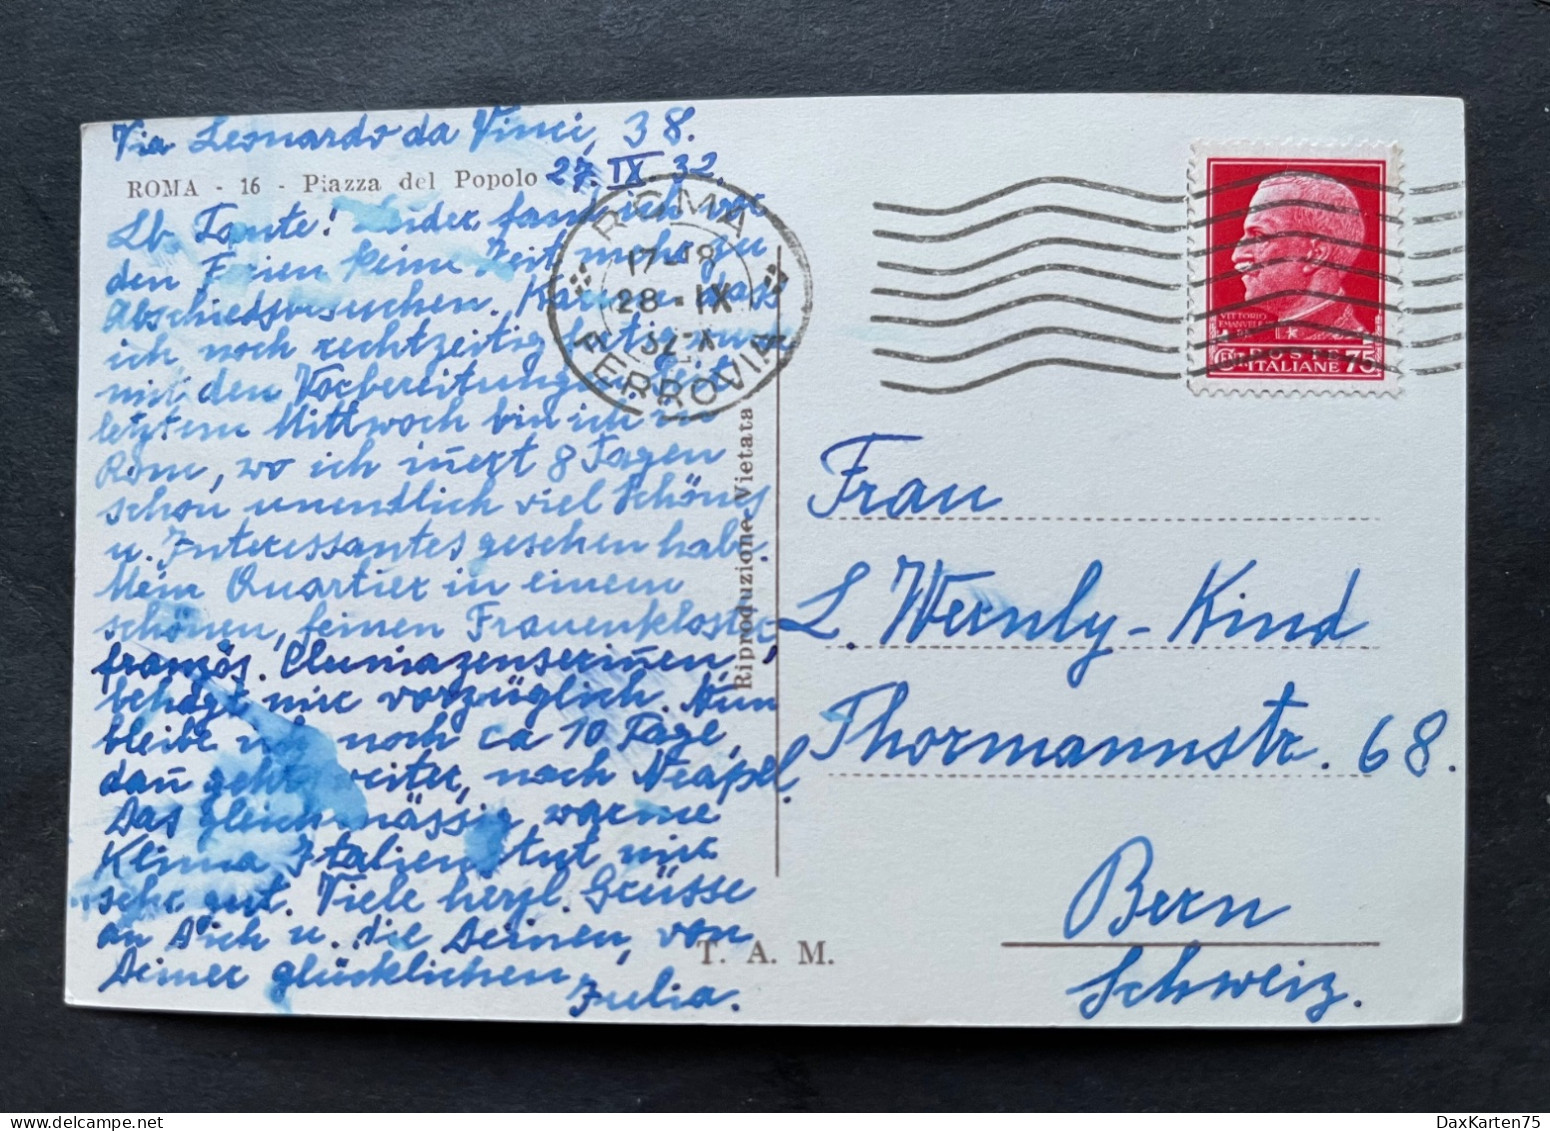 Via Leonardo da Vinci, 38.
ROMA - 16 - Piazza del Popolo
27.IX.32.
Lb Tante! Leider fand ich vor
den Ferien keine Zeit mehr zu
Abschiedsbesuchen. Kaum dass
ich noch rechtzeitig fertig wurde
mit den Vorbereitungen. Seit
letztem Mittwoch bin ich in
Rom, wo ich in̄ert 8 Tagen
schon unendlich viel Schönes
u. Interessantes gesehen habe.
Mein Quartier in einem
schönen, feinen Frauenkloster
französ.
behagt mir vorzüglich. Nun
bleibe ich noch ca 10 Tage,
dan̄ geht's weiter, nach Neapel.
Das gleichmässig warme
Klima Italiens tut mir
sehr gut. Viele herzl. Grüsse
an Dich u. die Deinen, von
Deiner glücklichen
Julia.
ROMA
17-18
28 - IX
32 X
FERROVIA
Riproduzione Vietata
T. A. M.
VITTORIO
EMANUELE
POSTE
ITALIANE 75
Frau
L. Wernly-Kind
Thormannstr. 68.
Bern
Schweiz.
DaxKarten75